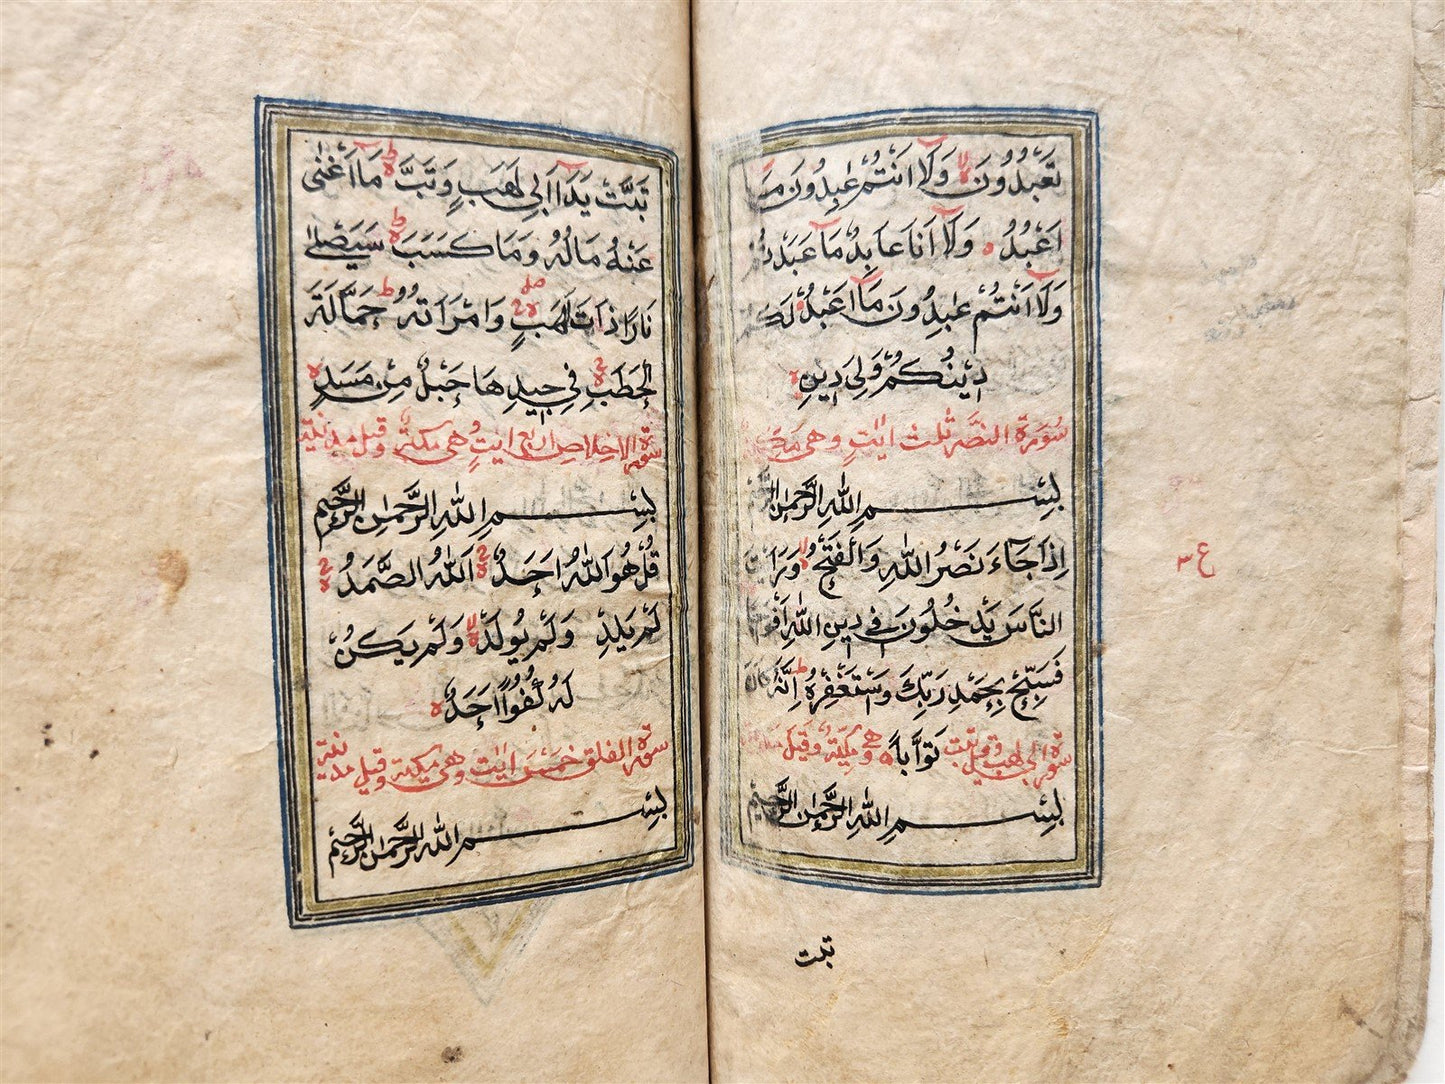 تَعْبُدُونَ لا وَلَا أَنْتُمْ عٰبِدُونَ مَا
اَعْبُدُ ه وَلَا اَنَا عَابِدٌ مَا عَبَدْتُمْ
وَلَا اَنْتُمْ عٰبِدُونَ مَا اَعْبُدُ لَكُمْ
دِيْنُكُمْ وَلِيَ دِيْنِ ه
سُوْرَة النَّصْر ثلث اٰيٰتٍ وهى
بِسْمِ اللّٰهِ الرَّحْمٰنِ الرَّحِيْمِ
اِذَا جَآءَ نَصْرُ اللّٰهِ وَالْفَتْحُ لا وَرَاَيْتَ
النَّاسَ يَدْخُلُوْنَ فِى دِيْنِ اللّٰهِ اَفْوَاجًا
فَسَبِّحْ بِحَمْدِ رَبِّكَ وَاسْتَغْفِرْهُ ط اِنَّهُ كَانَ
تَوَّابًا ه سورة ابى لهب وقيل تبت هى مكية وقيل
بِسْمِ اللّٰهِ الرَّحْمٰنِ الرَّحِيْمِ
تبت
ع ٣
تَبَّتْ يَدَا اَبِى لَهَبٍ وَتَبَّ ط مَا اَغْنٰى
عَنْهُ مَالُهُ وَمَا كَسَبَ ط سَيَصْلٰى
نَارًا ذَاتَ لَهَبٍ صلے وَامْرَاَتُهُ ط حَمَّالَةَ
الْحَطَبِ فِى جِيْدِهَا حَبْلٌ مِنْ مَسَدٍ ه
سورة الاخلاص اربع ايٰتٍ وهى مكية وقيل مدنية
بِسْمِ اللّٰهِ الرَّحْمٰنِ الرَّحِيْمِ
قُلْ هُوَ اللّٰهُ اَحَدٌ اَللّٰهُ الصَّمَدُ
لَمْ يَلِدْ وَلَمْ يُولَدْ لا وَلَمْ يَكُنْ
لَهُ كُفُوًا اَحَدٌ ه
سورة الفلق خمس ايٰت وهى مكية وقيل مدنية
بِسْمِ اللّٰهِ الرَّحْمٰنِ الرَّحِيْمِ